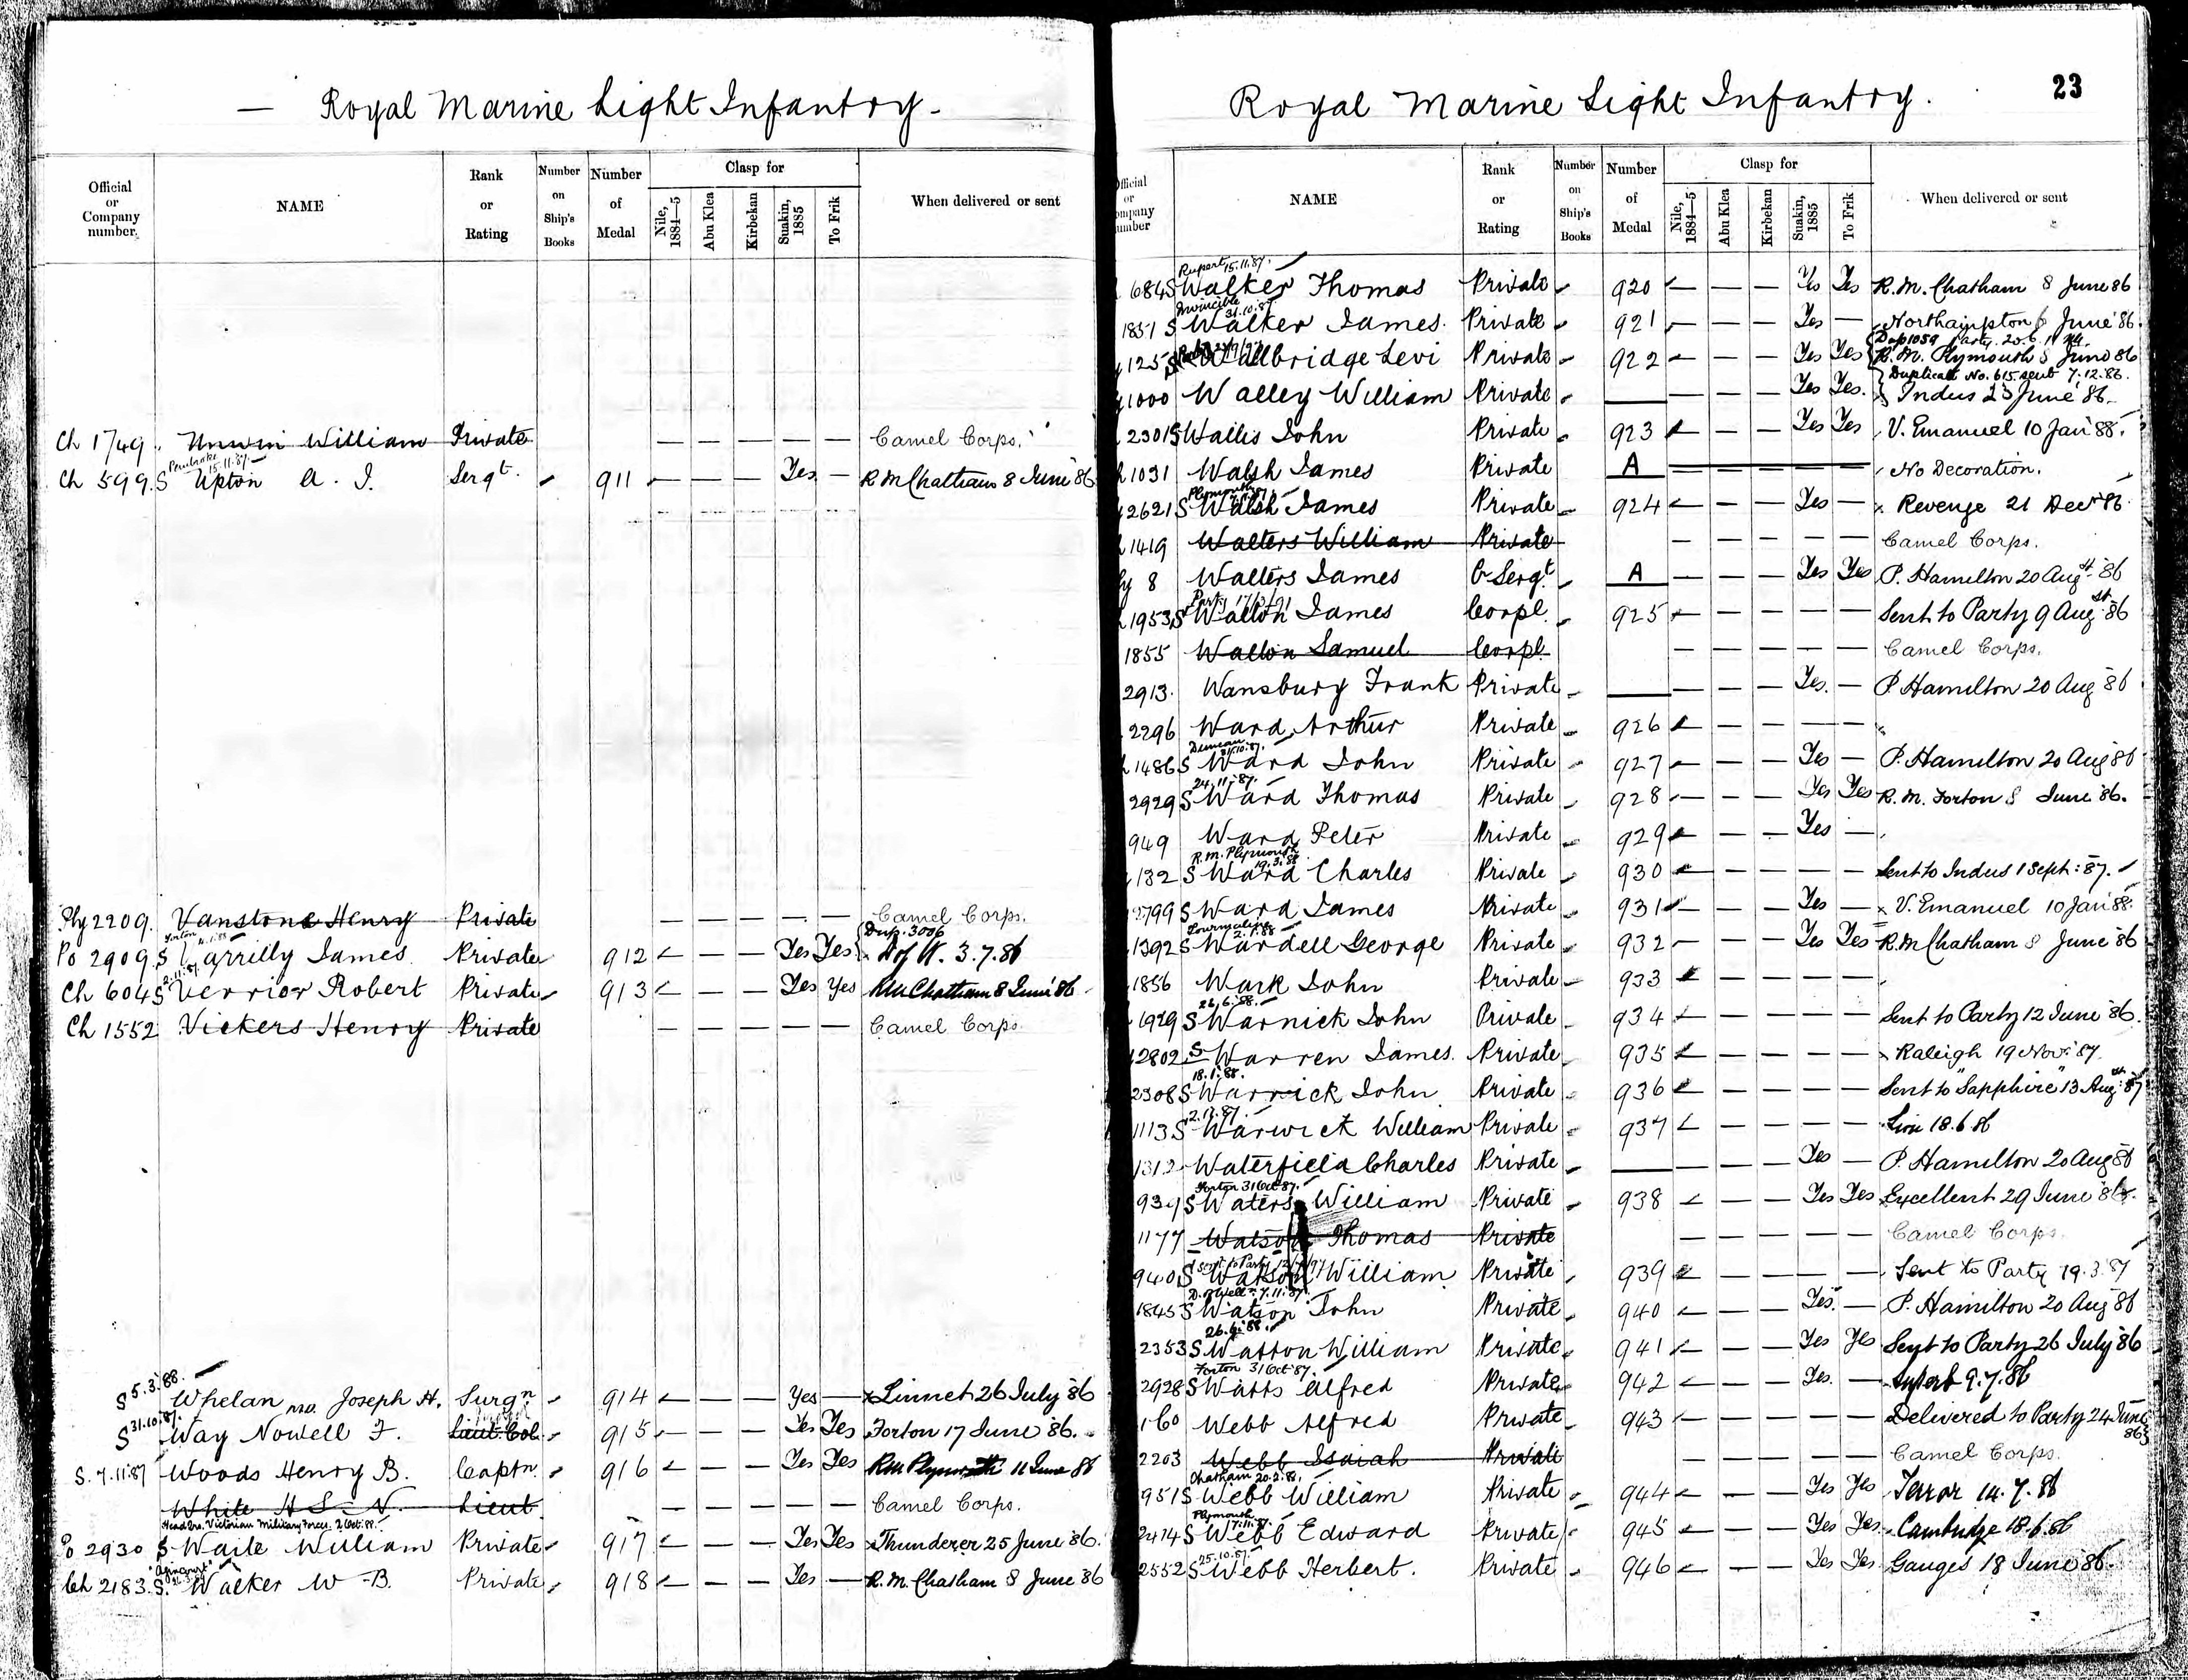 — Royal Marine Light Infantry. —
Official or Company number. NAME Rank or Rating Number on Ship's Books Number of Medal Clasp for Nile, 1884—5 Abu Klea Kirbekan Suakin, 1885 To Frik When delivered or sent
Ch 1749. Unwin William Private — — — — — Camel Corps.
Pembroke 15.11.87.
Ch 599. S Upton A. J. Sergt. 911 — — — Yes. — R M Chatham 8 June '86
Ply 2209. Vanstone Henry Private — — — — — Camel Corps.
Forton Dup. 3006
Po 2909. S Varrilly James Private 912 — — — Yes Yes 3.7.86
2.11.87.
Ch 604 S Verrior Robert Private 913 — — — Yes Yes RM Chatham 8 June '86
Ch 1552 Vickers Henry Private — — — — — Camel Corps
S 5.3.88. Whelan MD. Joseph H. Surgn 914 — — — Yes — x Linnet 26 July '86
S 31.10.87. Way Nowell F. Lieut. Col. 915 — — — Yes Yes Forton 17 June '86.
S. 7.11.87 Woods Henry B. Captn. 916 — — — Yes Yes RM Plymouth 11 June 86
White H. S. N. Lieut. — — — — — Camel Corps.
Head Qrs. Victorian Military Forces. 2 Oct. 88.
Po 2930 S Waite William Private 917 — — — Yes Yes x Thunderer 25 June '86.
Agincourt
Ch 2183. S. Walker W. B. Private 918 — — — Yes — R. M. Chatham 8 June '86
23
Royal Marine Light Infantry.
Official or Company number NAME Rank or Rating Number on Ship's Books Number of Medal Clasp for Nile, 1884—5 Abu Klea Kirbekan Suakin, 1885 To Frik When delivered or sent
Rupert 15.11.87.
684 S Walker Thomas Private 920 — — — Yes Yes R. M. Chatham 8 June 86
Invincible 31.10.87
1851 S Walker James. Private 921 — — — Yes — Northampton 6 June '86.
Dup 1059 Party. 20.6.
125 S Wallbridge Levi Private 922 — — — Yes Yes R. M. Plymouth 8 June 86
Duplicate No. 615 sent 7.12.86.
1000 Walley William Private — — — Yes Yes. Indus 23 June '86.
2301 S Wallis John Private 923 — — — Yes Yes V. Emanuel 10 Jan '88.
1031 Walsh James Private A — — — — — No Decoration.
Plymouth
2621 S Walsh James Private 924 — — — Yes — x Revenge 21 Decr 86
1419 Walters William Private — — — — — Camel Corps.
8 Walters James C. Sergt. A — — — Yes Yes P. Hamilton 20 Augst '86
Party
1953 S Walton James Corpl. 925 — — — — — Sent to Party 9 Augst '86
1855 Walton Samuel Corpl. — — — — — Camel Corps.
2913. Wansbury Frank Private — — — Yes. — P. Hamilton 20 Aug 86
2296 Ward Arthur Private 926 — — — — —
Duncan 31.10.87.
1486 S Ward John Private 927 — — — Yes — P. Hamilton 20 Aug 86
24.11.87.
2929 S Ward Thomas Private 928 — — — Yes Yes R. M. Forton 8 June 86.
949 Ward Peter Private 929 — — — Yes —
R. M. Plymouth 19.3.88
132 S Ward Charles Private 930 — — — — — Sent to Indus 1 Sept: 87.
799 S Ward James Private 931 — — — Yes — x V. Emanuel 10 Jan 88.
Tourmaline 2.1.88
1392 S Wardell George Private 932 — — — Yes Yes R M Chatham 8 June '86
1856 Wark John Private 933 — — — — —
26.6.88.
1929 S Warnick John Private 934 — — — — — Sent to Party 12 June '86.
2802 S Warren James. Private 935 — — — — — x Raleigh 19 Novr. 87.
18.1.88.
2308 S Warrick John Private 936 — — — — — Sent to "Sapphire" 13 Aug 87
2.11.87.
1113 S Warwick William Private 937 — — — — — Lion 18.6.86
1312 Waterfield Charles Private — — — Yes — P. Hamilton 20 Aug 86
Forton 31 Oct 87.
939 S Waters William Private 938 — — — Yes Yes Excellent 29 June '86.
1177 Watson Thomas Private — — — — — Camel Corps.
Sent to Party
940 S Watson William Private 939 — — — — — Sent to Party 19.3.87
7.11.87.
1845 S Watson John Private 940 — — — Yes. — P. Hamilton 20 Aug 86
26.6.88.
2353 S Watson William Private 941 — — — Yes Yes Sent to Party 26 July '86
Forton 31 Oct 87.
2928 S Watts Alfred Private 942 — — — Yes. — Superb 9.7.86
160 Webb Alfred Private 943 — — — — — Delivered to Party 24 June 86
2203 Webb Isaiah Private — — — — — Camel Corps.
Chatham 20.2.88.
951 S Webb William Private 944 — — — Yes Yes Terror 14.7.86
Plymouth 17.11.87.
2414 S Webb Edward Private 945 — — — Yes Yes. Cambridge 18.6.86
25.10.87.
2552 S Webb Herbert. Private 946 — — — Yes Yes Ganges 18 June '86.